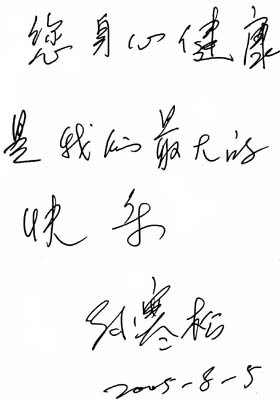 您身心健康
是我们最大的
快乐
寒松
2005-8-5